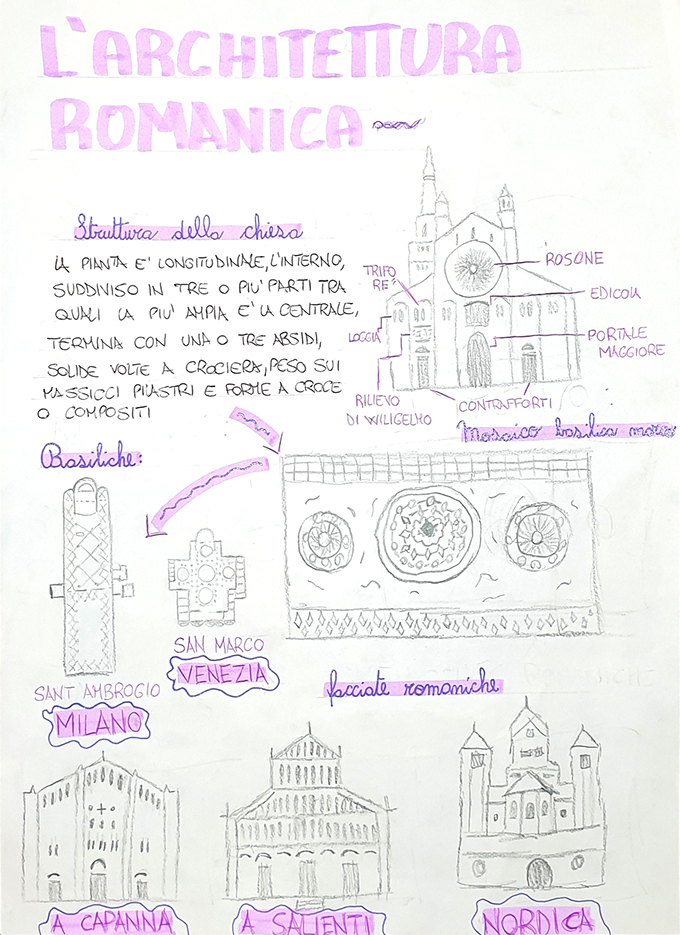 L'ARCHITETTURA
ROMANICA
Struttura della chiesa
LA PIANTA E' LONGITUDINALE, L'INTERNO,
SUDDIVISO IN TRE O PIU' PARTI TRA
QUALI LA PIU' AMPIA E' LA CENTRALE,
TERMINA CON UNA O TRE ABSIDI,
SOLIDE VOLTE A CROCIERA, PESO SUI
MASSICCI PILASTRI E FORME A CROCE
O COMPOSITI
ROSONE
TRIFO
RE
EDICOLA
LOGGIA
PORTALE
MAGGIORE
RILIEVO
DI WILIGELMO
CONTRAFFORTI
Mosaico basilica marco
Basiliche:
SAN MARCO
VENEZIA
SANT AMBROGIO
MILANO
facciate romaniche
A CAPANNA
A SALIENTI
NORDICA